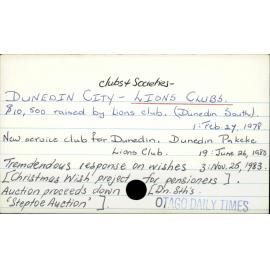 clubs & Societies -
DUNEDIN CITY - LIONS CLUBS.
$10,500 raised by Lions club. (Dunedin South).
1: Feb. 27, 1978
New service club for Dunedin. Dunedin Pakeke
Lions Club. 19: June 26, 1980
Tremdendous response on wishes 3: Nov. 25, 1983.
[Christmas Wish project for pensioners].
Auction proceeds down [Dn. Sth's
"Steptoe Auction"]
OTAGO DAILY TIMES